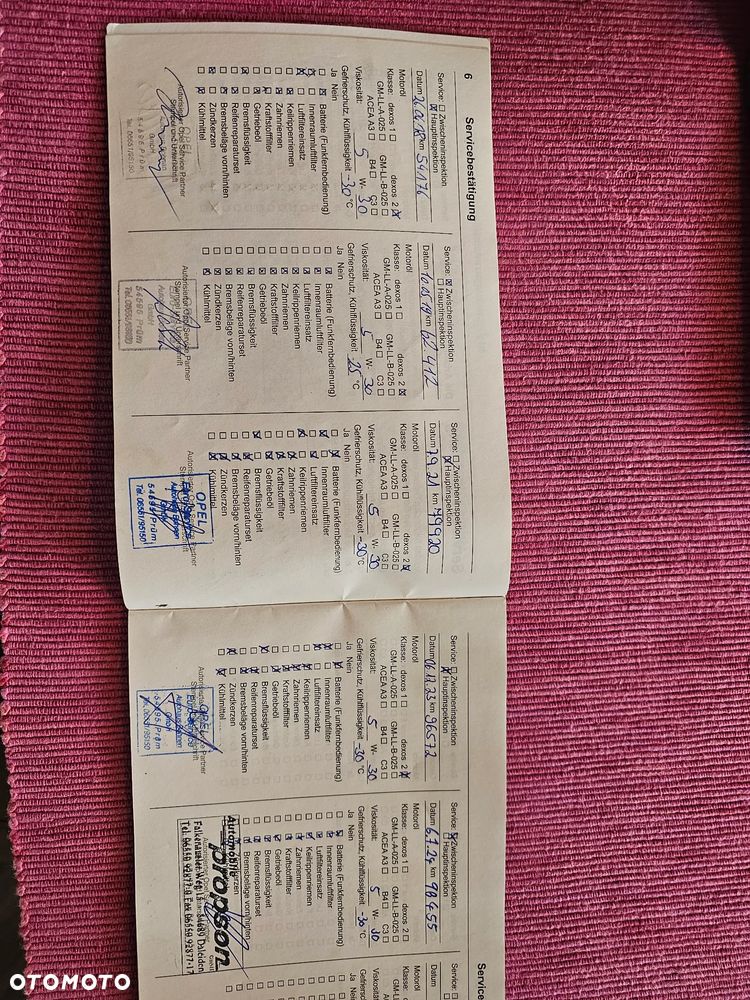 6
Servicebestätigung
Service: Zwischeninspektion
Hauptinspektion
Datum km 54176
Motoröl
Klasse: dexos 1 dexos 2
GM-LL-A-025 GM-LL-B-025
ACEA A3 B4 C3
Viskosität: 5 W- 30
Gefrierschutz, Kühlflüssigkeit -30 °C
Ja Nein
Batterie (Funkfernbedienung)
Innenraumluftfilter
Luftfiltereinsatz
Keilrippenriemen
Zahnriemen
Kraftstofffilter
Getriebeöl
Bremsflüssigkeit
Reifenreparaturset
Bremsbeläge vorn/hinten
Zündkerzen
Kühlmittel
Service: Zwischeninspektion
Hauptinspektion
Datum 10.05.19 km 62412
Motoröl
Klasse: dexos 1 dexos 2
GM-LL-A-025 GM-LL-B-025
ACEA A3 B4 C3
Viskosität: 5 W- 30
Gefrierschutz, Kühlflüssigkeit -25 °C
Ja Nein
Batterie (Funkfernbedienung)
Innenraumluftfilter
Luftfiltereinsatz
Keilrippenriemen
Zahnriemen
Kraftstofffilter
Getriebeöl
Bremsflüssigkeit
Reifenreparaturset
Bremsbeläge vorn/hinten
Zündkerzen
Kühlmittel
Autorisierter Opel Service Partner
Stempel und Unterschrift
54595 Prüm
Service: Zwischeninspektion
Hauptinspektion
Datum 7.9.21 km 79920
Motoröl
Klasse: dexos 1 dexos 2
GM-LL-A-025 GM-LL-B-025
ACEA A3 B4 C3
Viskosität: 5 W- 30
Gefrierschutz, Kühlflüssigkeit -30 °C
Ja Nein
Batterie (Funkfernbedienung)
Innenraumluftfilter
Luftfiltereinsatz
Keilrippenriemen
Zahnriemen
Kraftstofffilter
Getriebeöl
Bremsflüssigkeit
Reifenreparaturset
Bremsbeläge vorn/hinten
Zündkerzen
Kühlmittel
OPEL
54595 Prüm
Tel. 06551/95150
Service: Zwischeninspektion
Hauptinspektion
Datum 06.12.23 km 96572
Motoröl
Klasse: dexos 1 dexos 2
GM-LL-A-025 GM-LL-B-025
ACEA A3 B4 C3
Viskosität: 5 W- 30
Gefrierschutz, Kühlflüssigkeit -30 °C
Ja Nein
Batterie (Funkfernbedienung)
Innenraumluftfilter
Luftfiltereinsatz
Keilrippenriemen
Zahnriemen
Kraftstofffilter
Getriebeöl
Bremsflüssigkeit
Reifenreparaturset
Bremsbeläge vorn/hinten
Zündkerzen
Kühlmittel
OPEL
54595 Prüm
Service: Zwischeninspektion
Hauptinspektion
Datum 6.7.24 km 98455
Motoröl
Klasse: dexos 1 dexos 2
GM-LL-A-025 GM-LL-B-025
ACEA A3 B4 C3
Viskosität: 5 W- 30
Gefrierschutz, Kühlflüssigkeit -30 °C
Ja Nein
Batterie (Funkfernbedienung)
Innenraumluftfilter
Luftfiltereinsatz
Keilrippenriemen
Zahnriemen
Kraftstofffilter
Getriebeöl
Bremsflüssigkeit
Reifenreparaturset
Bremsbeläge vorn/hinten
Automobile
propson
54689 Daleiden
Fax 06550 92877-17
Service
Datum
Motoröl
Klasse:
Viskosität:
Ja Nein
OTOMOTO